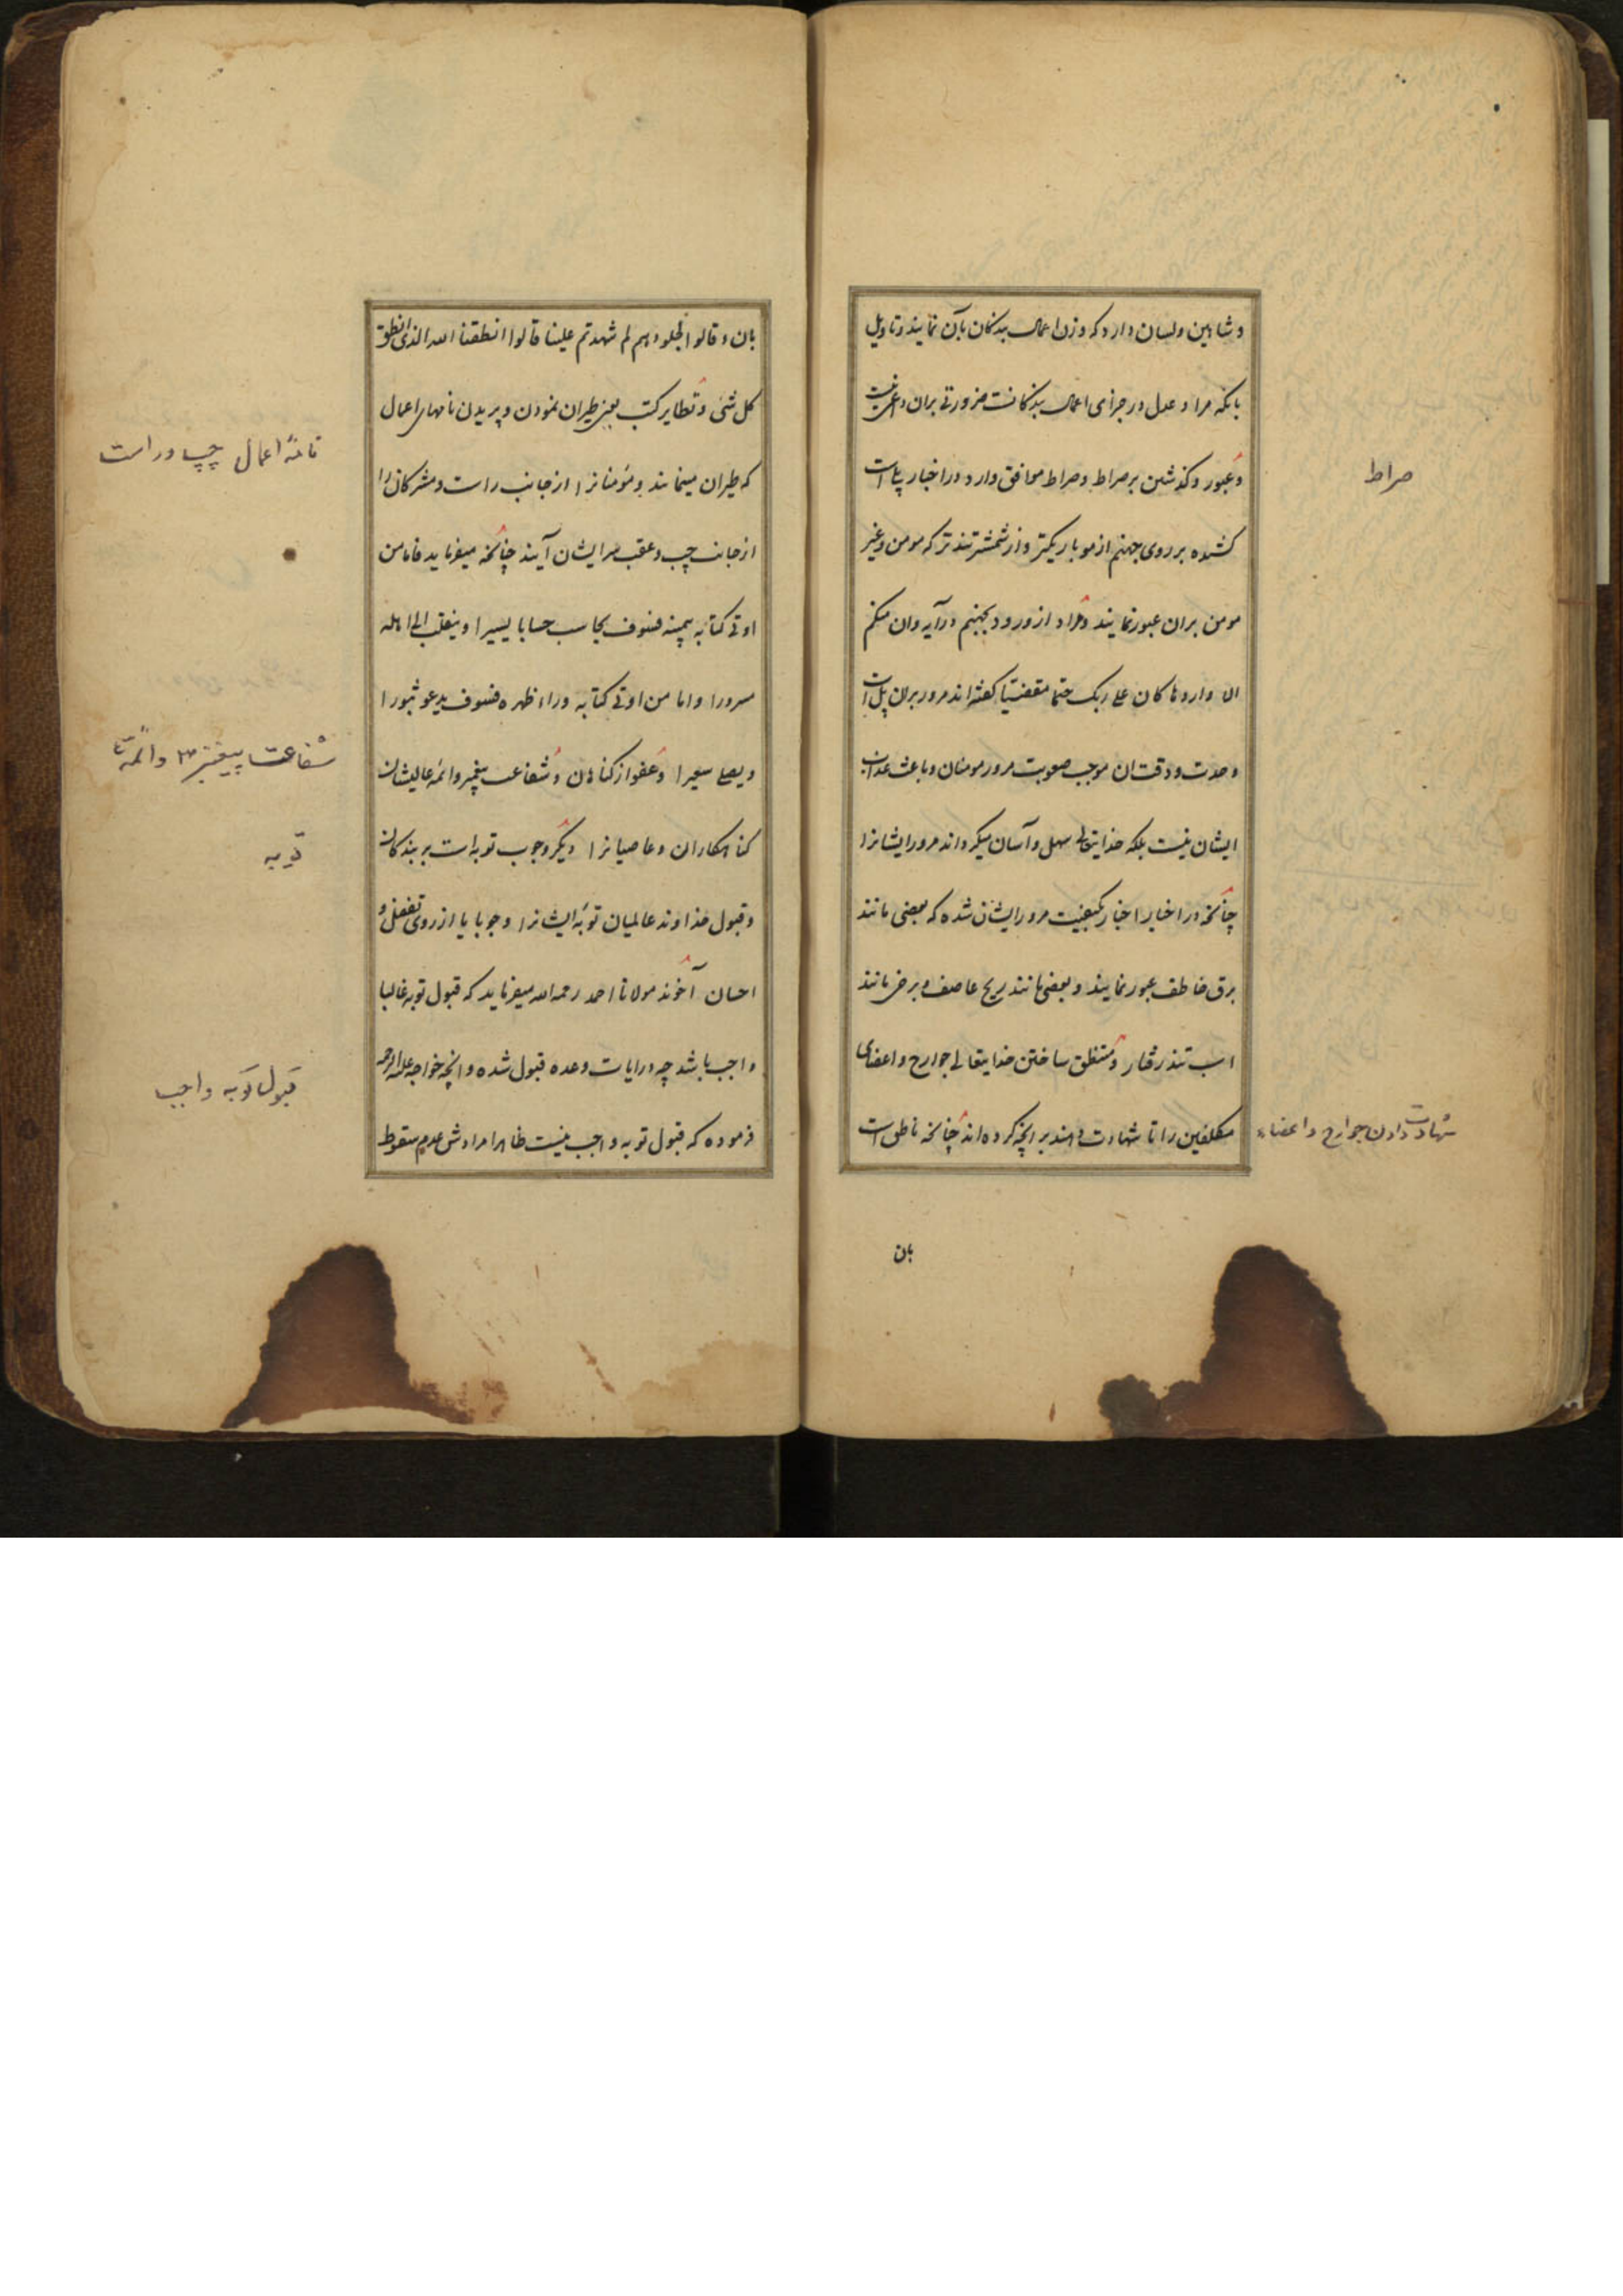 و شاهین و لسان دارد که وزن اعمال بندکان بآن نمایند و تاویل
بانکه مراد عدل در جزای اعمال بندکانست ضرورتی بران داعی نیست
و عبور و کذشتن بر صراط و صراط موافق وارد در اخبار پلی است
کشیده بر روی جهنم از مو باریکتر و از شمشیر تندتر که مومن و غیر
مومن بران عبور نمایند و مراد از ورود بجهنم در آیه وان منکم
الا واردها کان علی ربک حتما مقضیا کفته اند مرور بران پل است
و حدت و دقت ان موجب صعوبت مرور مومنان و باعث عذاب
ایشان نیست بلکه خدایتعالی سهل و آسان میکرداند مرور ایشانرا
چنانکه در اخبار اخبار بکیفیت مرور ایشان شده که بعضی مانند
برق خاطف عبور نمایند و بعضی مانند ریح عاصف و برخی مانند
اسب تند رفتار و منطق ساختن خدایتعالی جوارح و اعضای
مکلفین را تا شهادت دهند بر انچه کرده اند چنانکه ناطق است
بان
صراط
شهادت دادن جوارح و اعضاء
بان و قالوا لجلودهم لم شهدتم علینا قالوا انطقنا الله الذی انطق
کل شئ و تطایر کتب یعنی طیران نمودن و پریدن نامهای اعمال
که طیران مینمایند و مؤمنانرا از جانب راست و مشرکان را
از جانب چپ و عقب سر ایشان آیند چنانکه میفرماید فاما من
اوتی کتابه بیمینه فسوف یحاسب حسابا یسیرا و ینقلب الی اهله
مسرورا و اما من اوتی کتابه وراء ظهره فسوف یدعو ثبورا
و یصلی سعیرا و عفو از کناهان و شفاعت پیغمبر و ائمه عالیشان
کناهکاران و عاصیانرا دیکر وجوب توبه است بر بندکان
و قبول خداوند عالمیان توبه ایشانرا وجوبا یا از روی تفضل و
احسان آخوند مولانا احمد رحمه الله میفرماید که قبول توبه غالبا
واجب باشد چه در ایات وعده قبول شده و انچه خواجه علیه الرحمه
فرموده که قبول توبه واجب نیست ظاهرا مرادش عدم سقوط
نامهٔ اعمال چپ و راست
شفاعت پیغمبر ص و ائمه ع
توبه
قبول توبه واجب